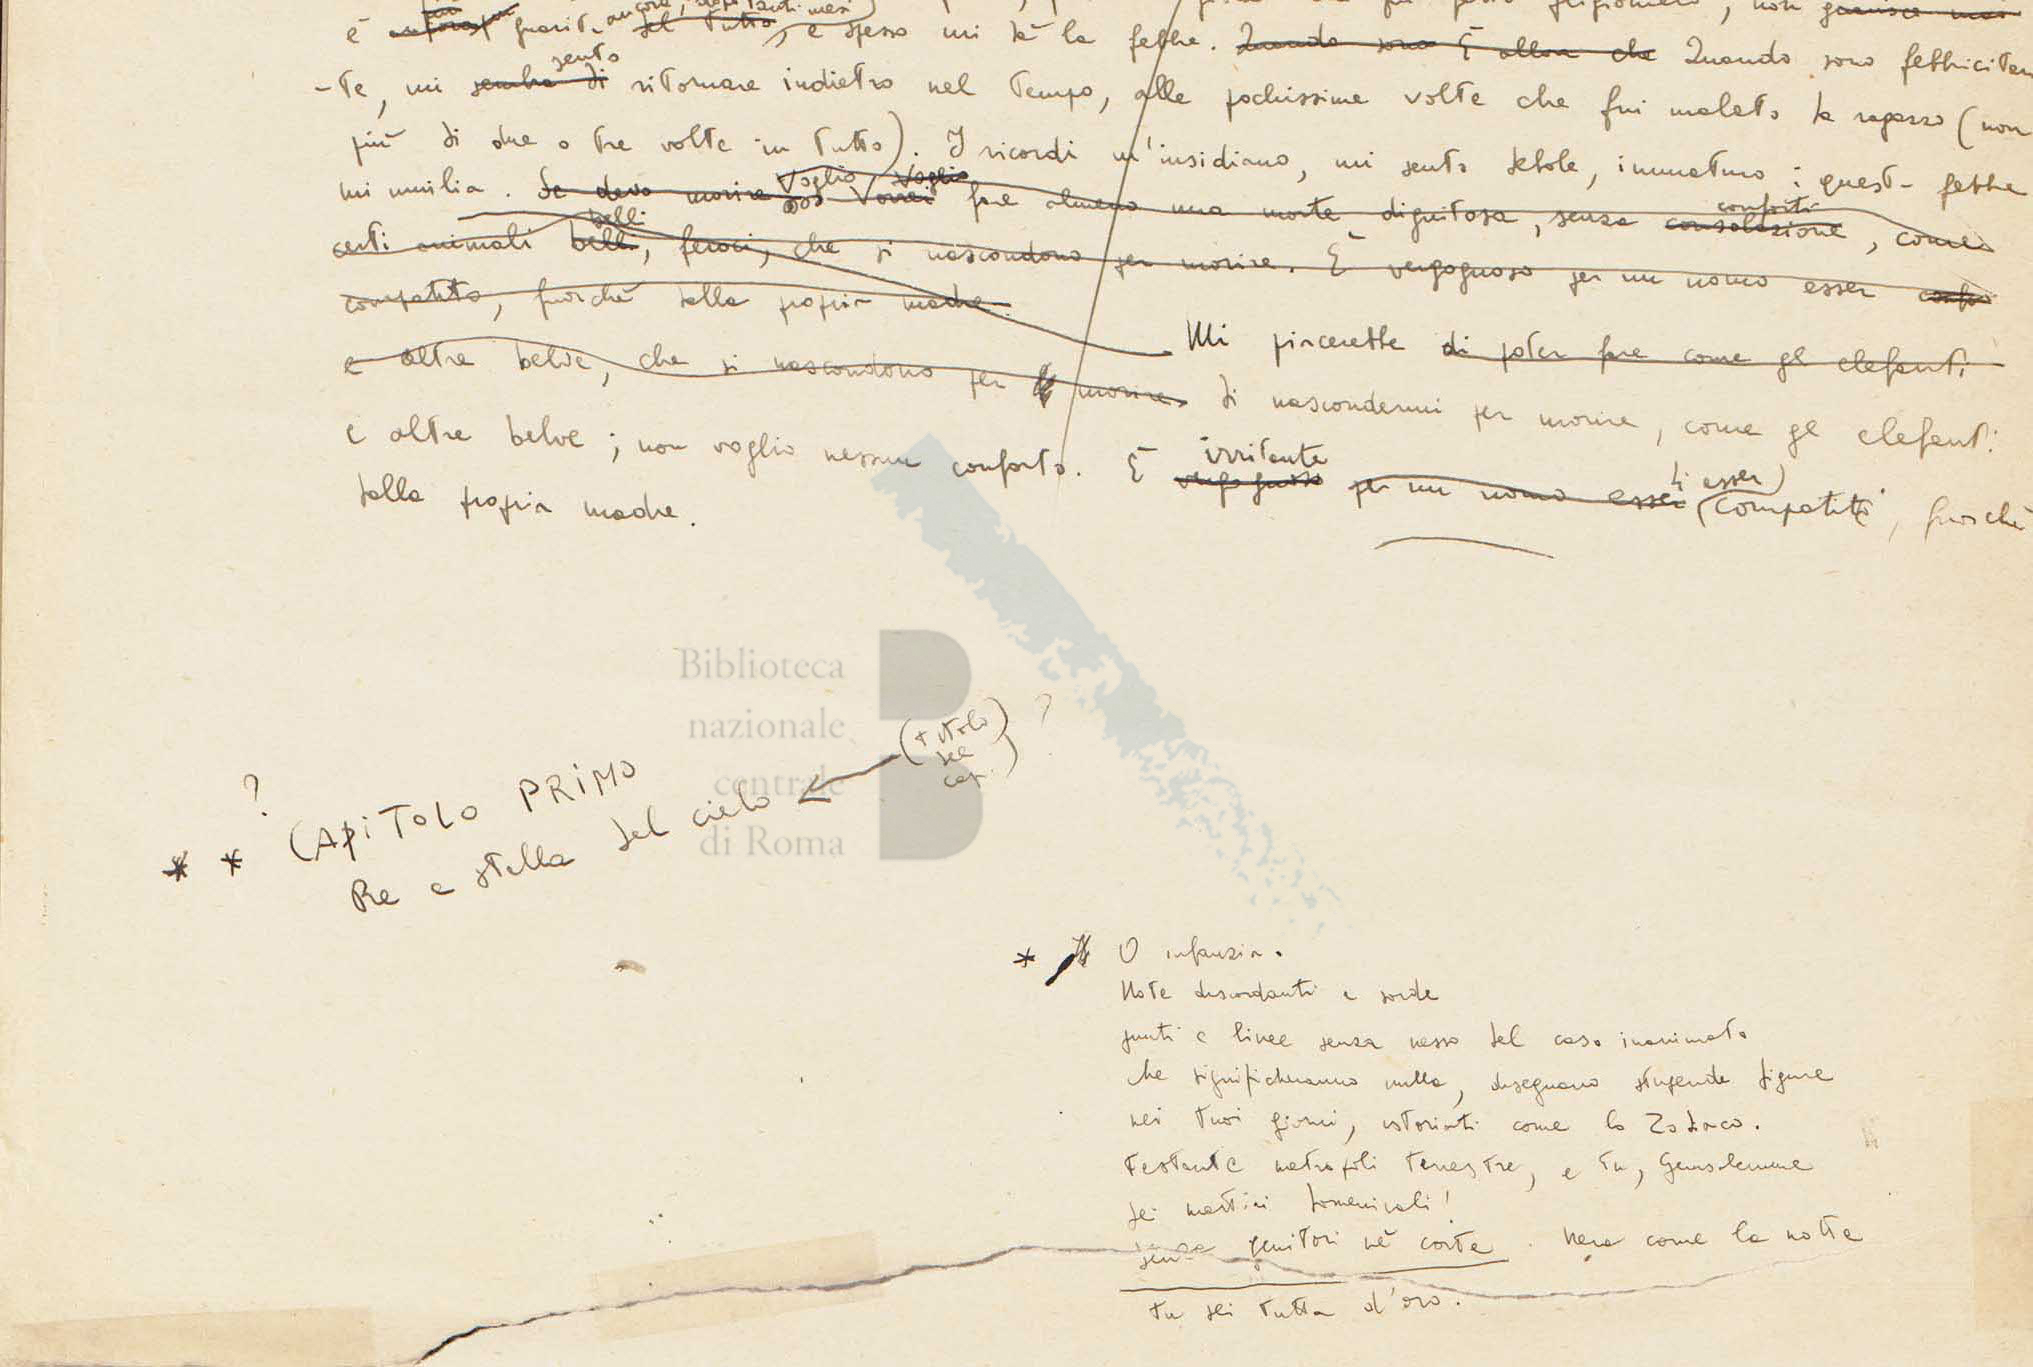 è ancora guarita ancora, dopo tanti mesi del tutto, e spesso mi dà la febbre. Quando sono È allora che Quando sono febbricitan
-te, mi sembra di sento ritornare indietro nel tempo, alle pochissime volte che fui malato da ragazzo (non
più di due o tre volte in tutto). I ricordi m'insidiano, mi sento debole, immaturo; quest- febbre
mi umilia. Se devo morire Voglio Voglio Vorrei fare almeno una morte dignitosa, senza consolazione conforti, come
certi animali belli belli, feroci, che si nascondono per morire. È vergognoso per un uomo esser
compatito, fuorché dalla propria madre.
Mi piacerebbe di poter fare come gl elefanti
e altre belve, che si nascondono per morire. di nascondermi per morire, come gl elefanti
e altre belve; non voglio nessun conforto. È vergognoso irritante per un uomo esser d'esser compatiti, fuorché
dalla propria madre.
Biblioteca
nazionale
centrale
di Roma
(titolo
del
cap.) ?
?
* * CAPiTOLO PRiMO
Re e stella del cielo
* O infanzia.
Note discordanti e sorde
punti e linee senza nesso del caso inanimato
che significheranno nulla, disegnano stupende figure
nei tuoi giorni, istoriati come lo Zodiaco.
Festante metropoli terrestre, e tu, Gerusalemme
dei mattini domenicali!
senza genitori nè corte. Nera come la notte
tu sei tutta d'oro.